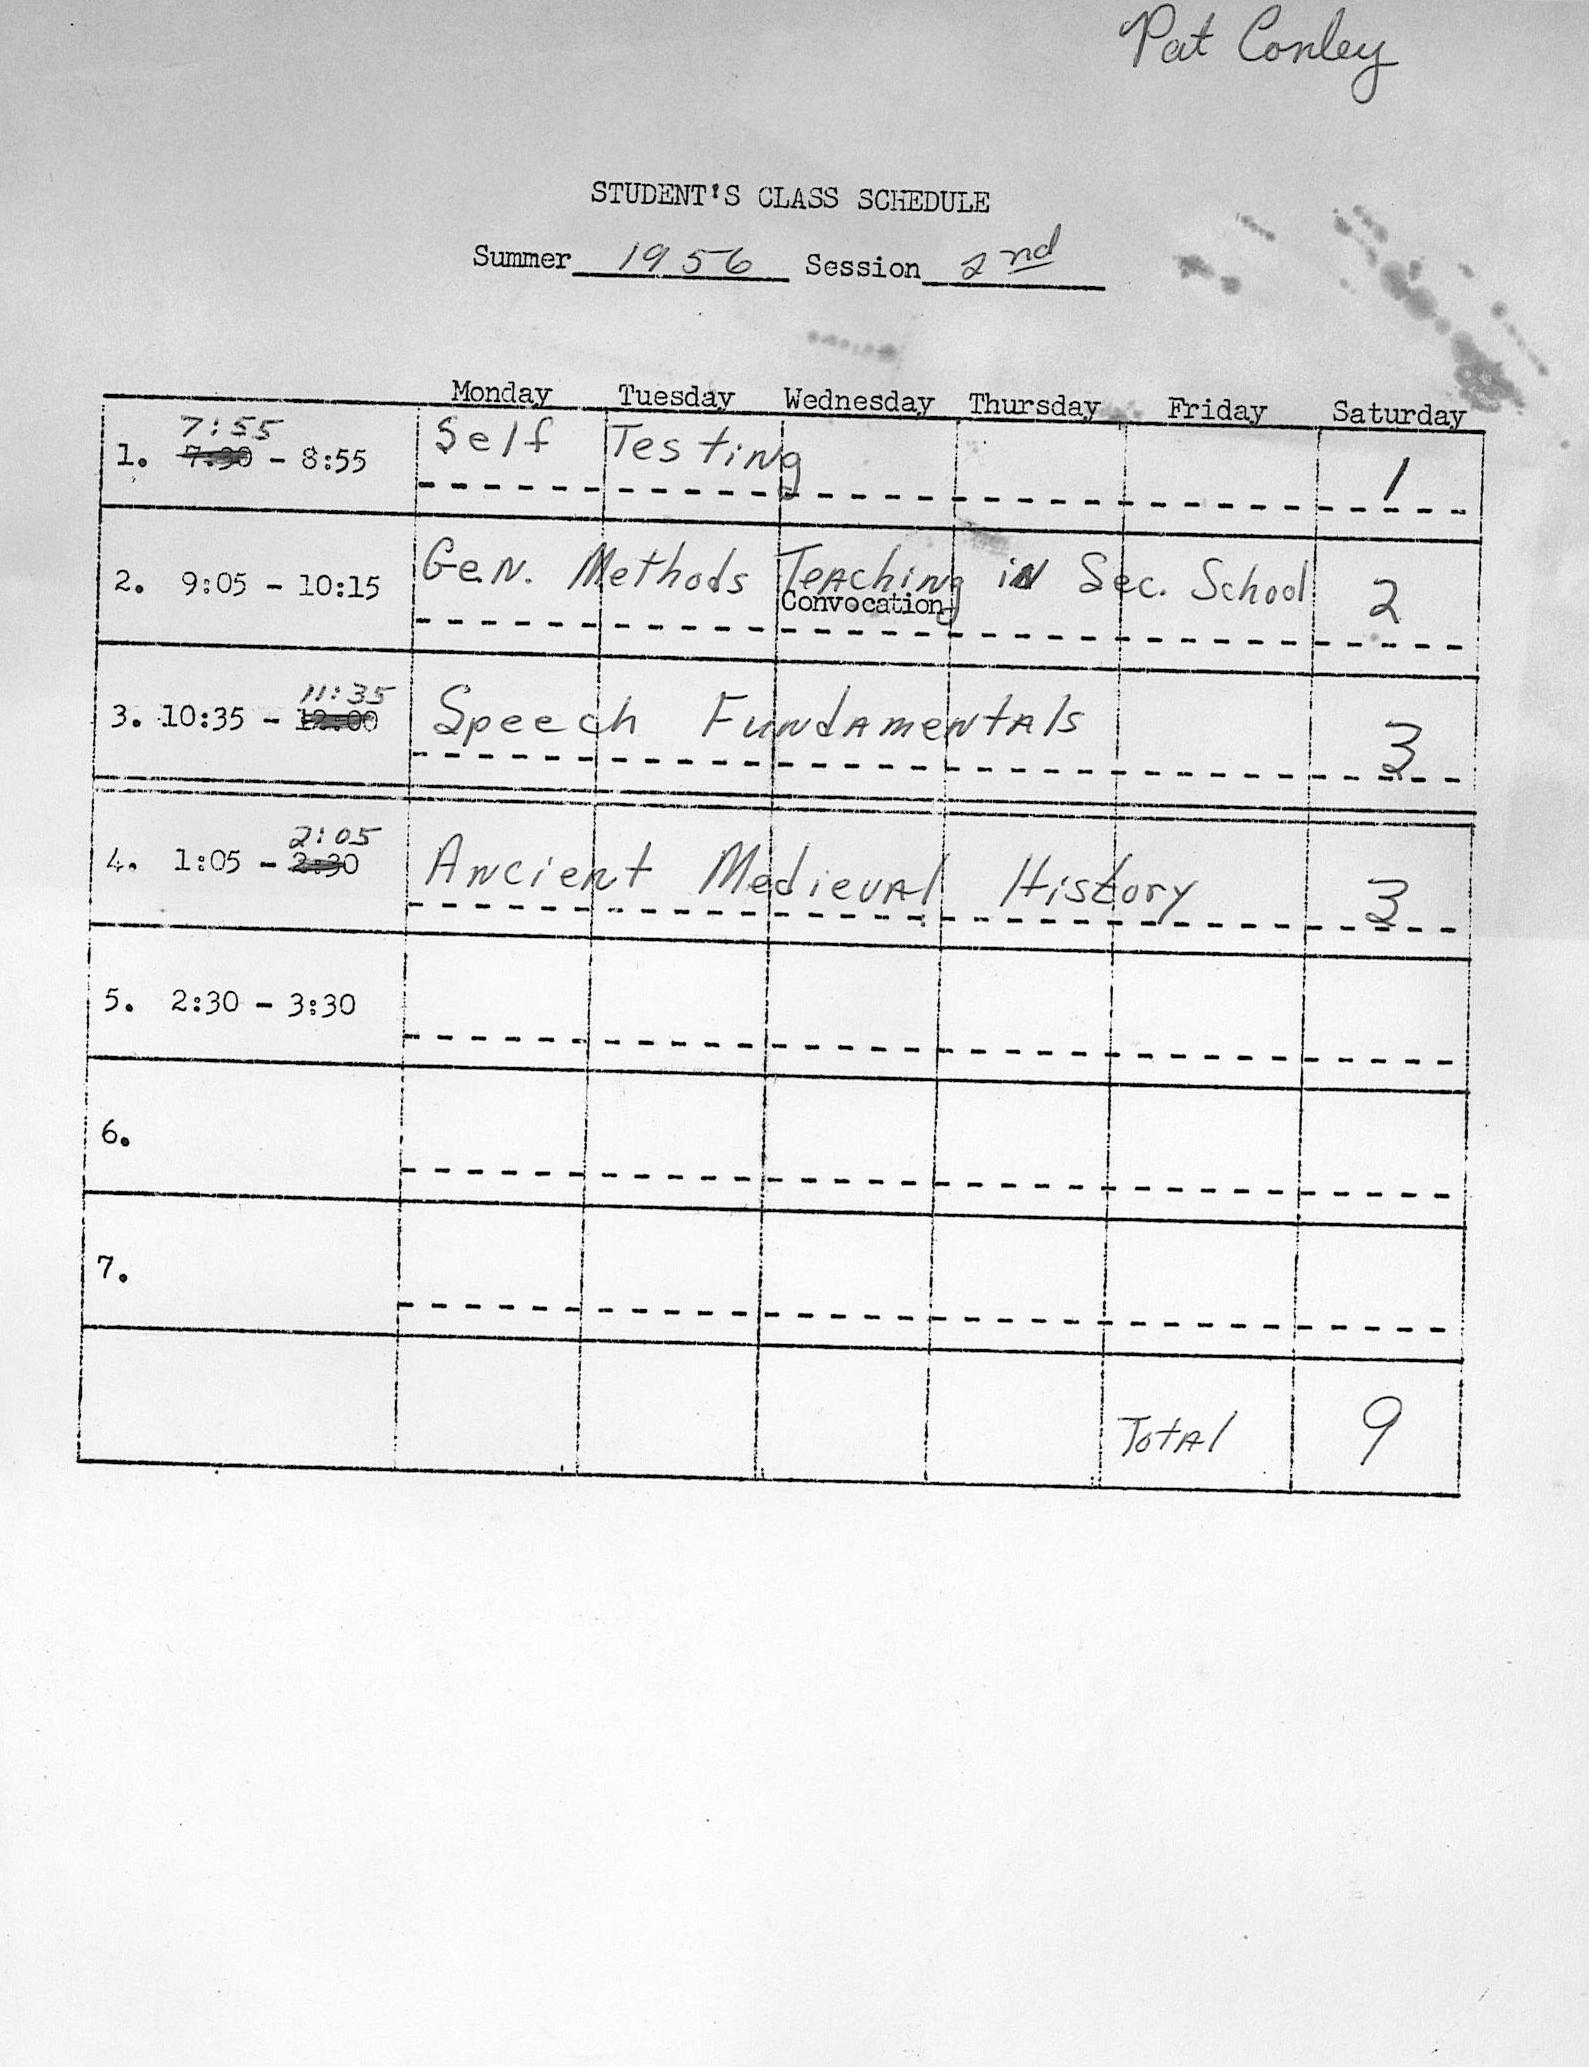 Pat Conley
STUDENT'S CLASS SCHEDULE
Summer 1956 Session 2nd
Monday Tuesday Wednesday Thursday Friday Saturday
7:55
1. 7:30 - 8:55 Self Testing 1
2. 9:05 - 10:15 Gen. Methods Teaching in Sec. School 2
Convocation
11:35
3. 10:35 - 12:00 Speech Fundamentals 3
2:05
4. 1:05 - 2:30 Ancient Medieval History 3
5. 2:30 - 3:30
6.
7.
Total 9